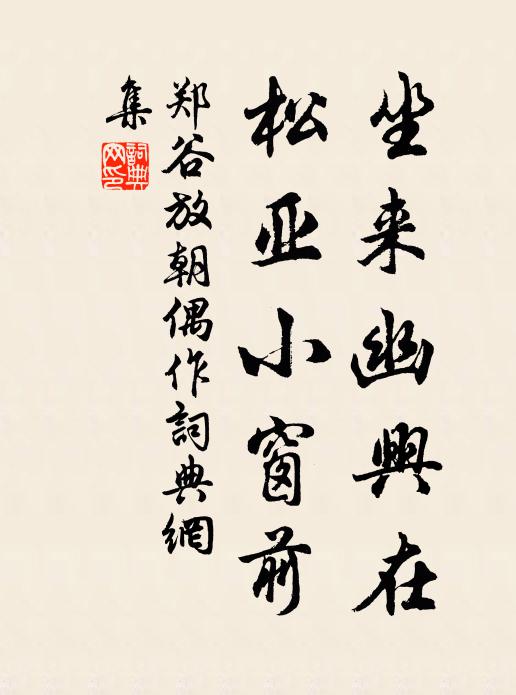 坐来幽興在
松亚小窗前
郑谷放朝偶作詞典網
集
詞典
网印